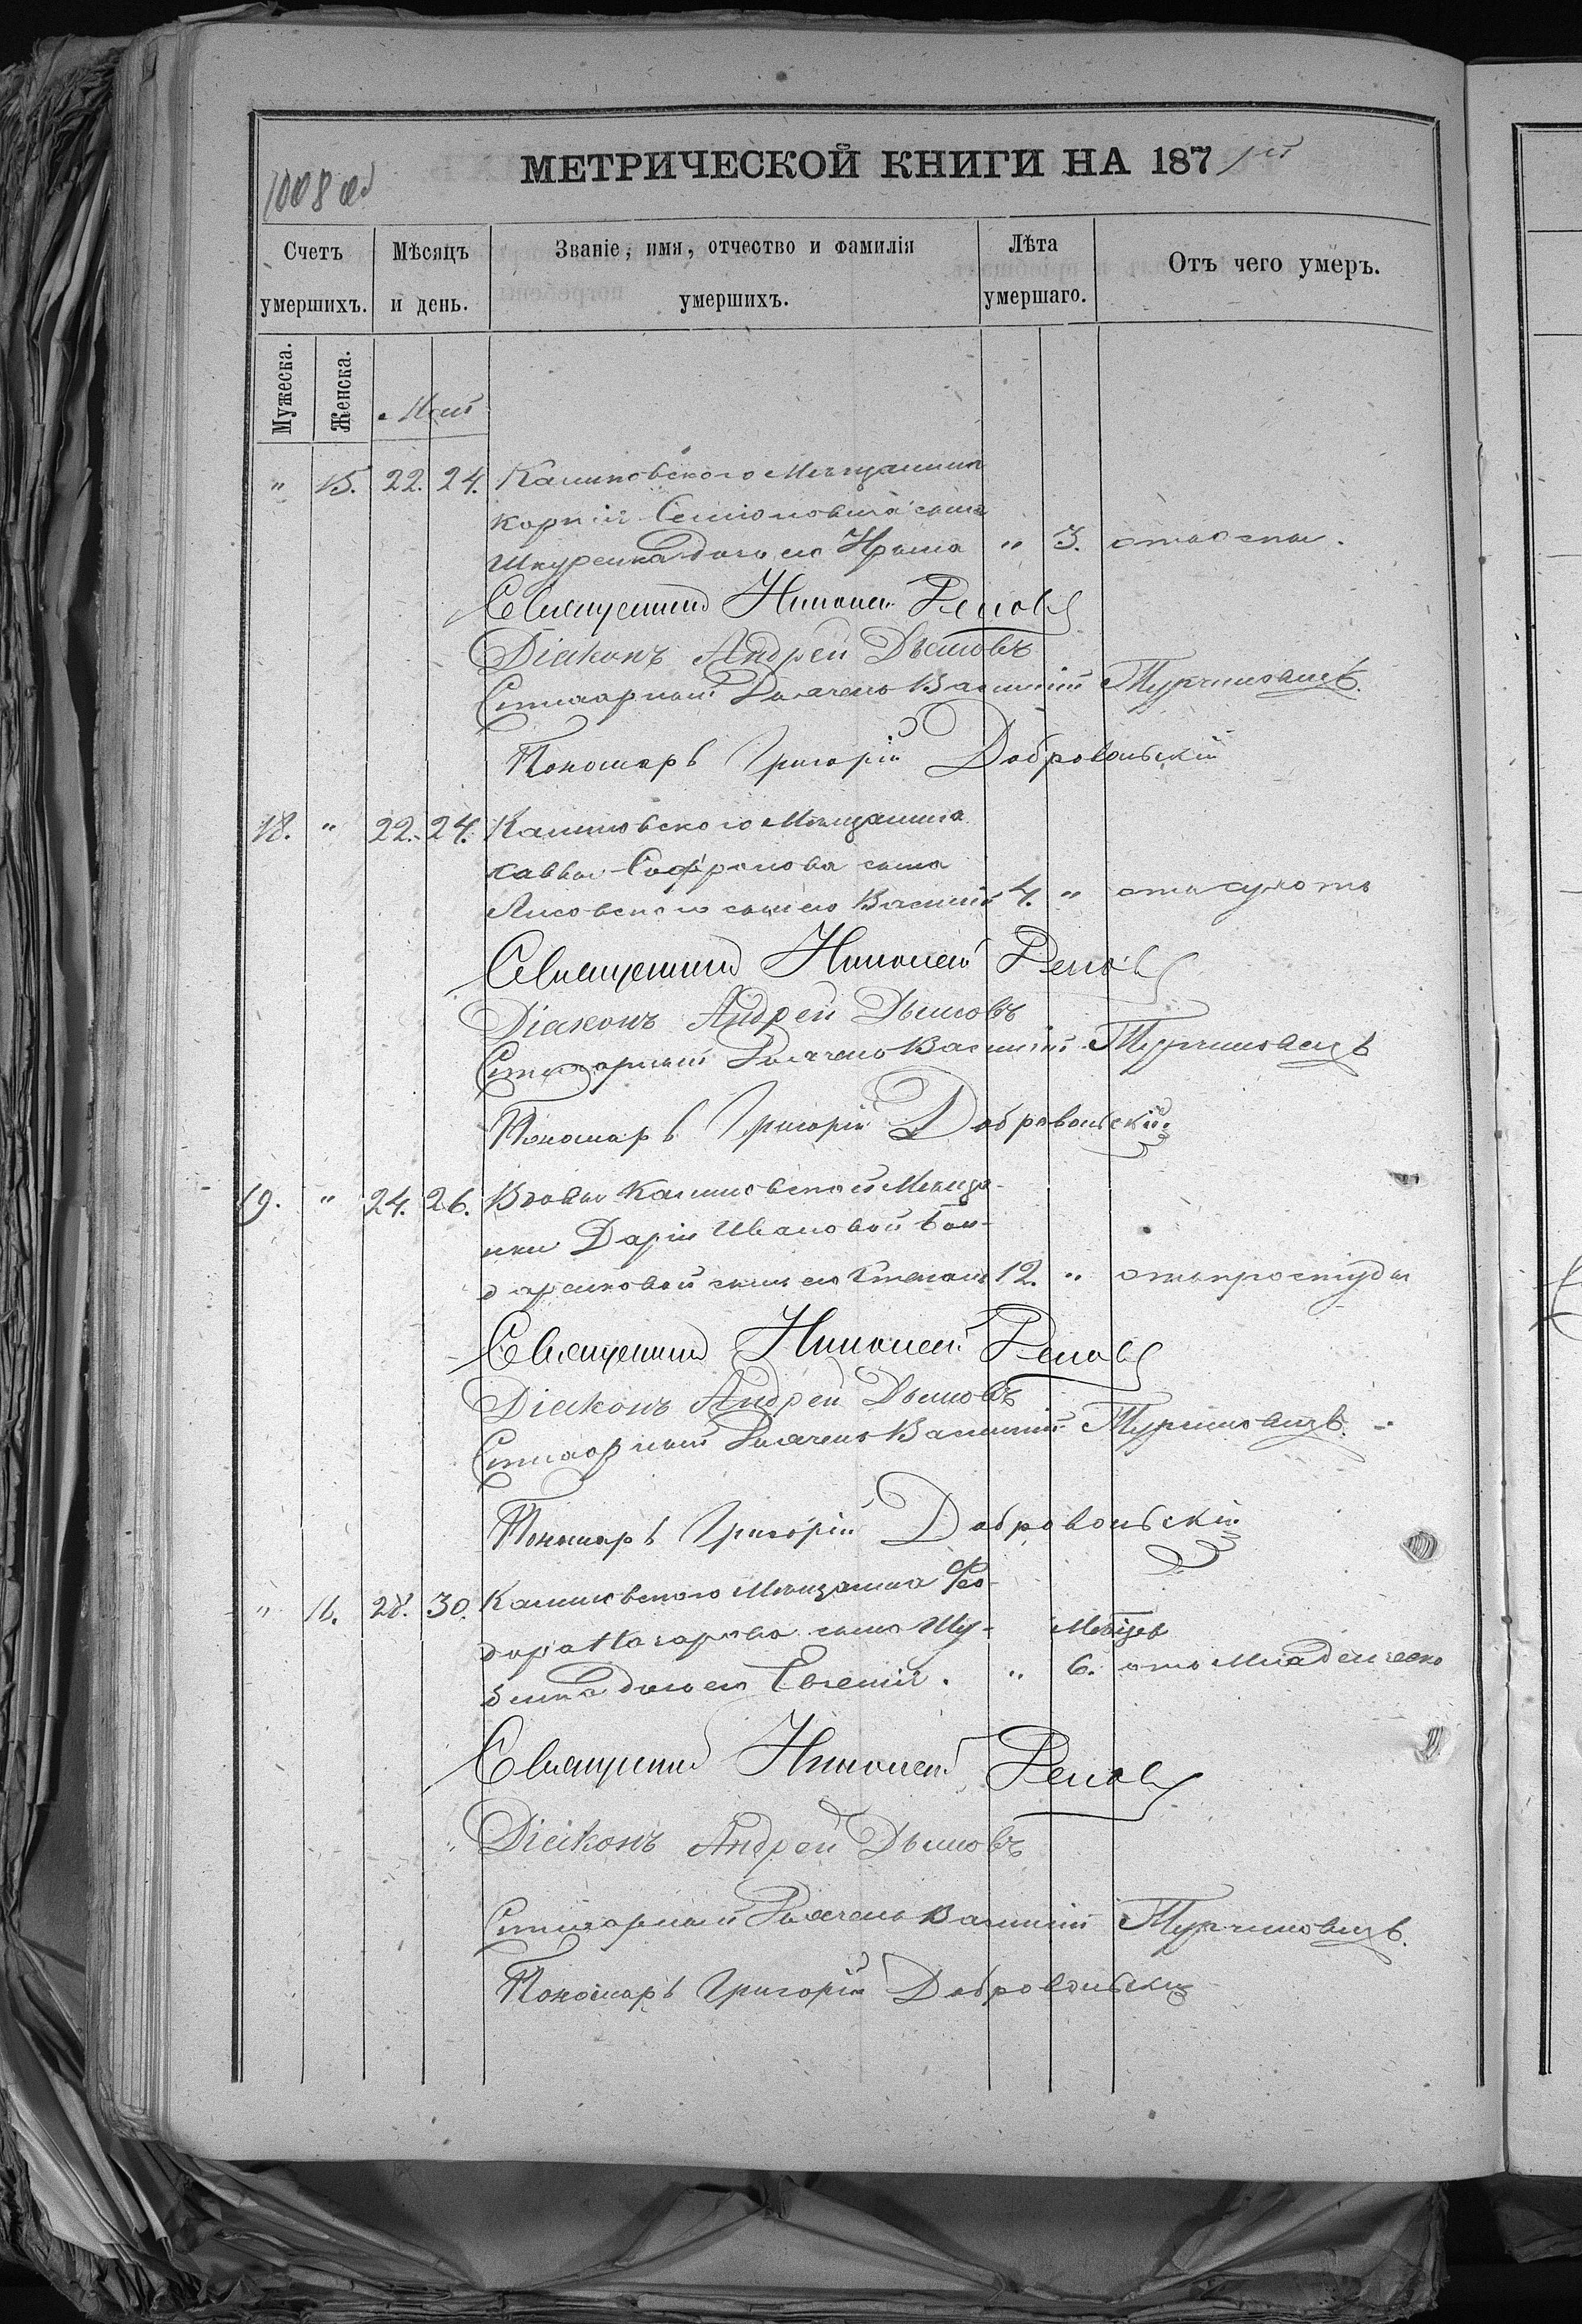 1008 об
МЕТРИЧЕСКОЙ КНИГИ НА 1871 г.
Счетъ умершихъ.
Мѣсяцъ и день.
Званіе, имя, отчество и фамилія умершихъ.
Лѣта умершаго.
Отъ чего умеръ.
Мужеска.
Женска.
Май
" 15. 22. 24. Калиновского Мещанина
Корнія Семіонова сына
Шкуренка дочь его Ирина " 3. отъ оспы.
Священникъ Николай
Діаконъ Андрей Дымовъ
Стихарный Дьячекъ Василій Турчиновецъ.
Пономарь Григорій Добровольскій
18. " 22. 24. Калиновского Мещанина
Саввы Софронова сына
Лисовского сынъ его Василій 4. " отъ сухотъ
Священникъ Николай
Діаконъ Андрей Дымовъ
Стихарный Дьячекъ Василій Турчиновецъ
Пономарь Григорій Добровольскій
19. " 24. 26. Вдовы Калиновской Меща-
нки Даріи Ивановой Бон-
даренковой сынъ ея Стефанъ 12. " отъ простуды
Священникъ Николай
Діаконъ Андрей Дымовъ
Стихарный Дьячекъ Василій Турчиновецъ.
Пономарь Григорій Добровольскій
" 16. 28. 30. Калиновского Мещанина Фео-
дора Назарова сына Шу-
дочь его Евгенія. " Мѣсяцев 6. отъ Младенческо
Священникъ Николай
Діаконъ Андрей Дымовъ
Стихарный Дьячекъ Василій Турчиновецъ.
Пономарь Григорій Добровольскій